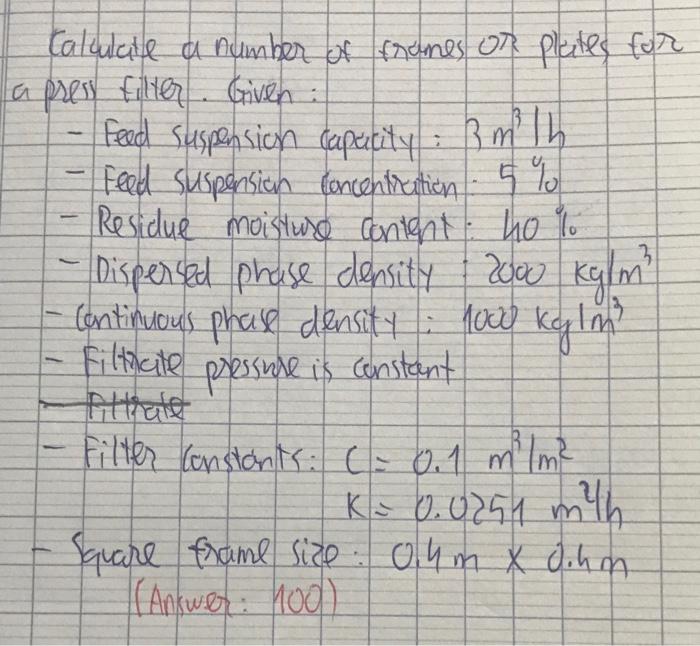 Calculate a number of frames OR plates for
a press filter. Given:
- Feed suspension capacity: 3 m³/h
- Feed suspension concentration: 5 %
- Residue moisture content: 40 %
- Dispersed phase density: 2000 kg/m³
- Continuous phase density: 1000 kg/m³
- Filtrate pressure is constant
- Filtrate
- Filter constants: C = 0.1 m³/m²
K = 0.0251 m²/h
- Square frame size: 0.4m x 0.4m
(Answer: 100)